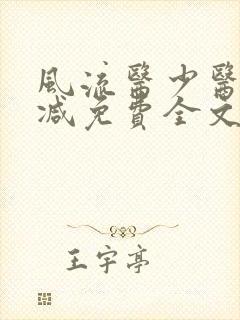 風流醫少醫
减免費全文
王宇亭